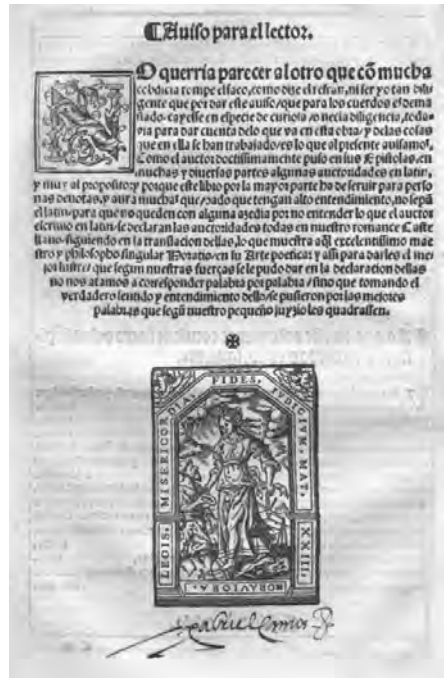 ¶Auiso para el lector.
NO querria parecer al otro que cõ mucha
cobdicia rompe el saco, como dize el refran, ni ser yo tan dili
gente que por dar este auiso / que para los cuerdos es dema
siado / cayesse en especie de curiosa / o necia diligencia, toda-
via para dar cuenta delo que va en esta obra / y delas cosas
que en ella se han trabajado / es lo que al presente auisamos.
Como el auctor doctissimamente puso en sus Epistolas, en
muchas y diuersas partes algunas auctoridades en latin,
y muy al proposito: y porque este libro por la mayor parte ha de seruir para perso
nas deuotas, y aura muchas que / dado que tengan alto entendimiento, no sepã
el latin / para que no queden con alguna azedia por no entender lo que el auctor
escriuio en latin / se declaran las auctoridades todas en nuestro romance Caste
llano / siguiendo en la translacion dellas, lo que muestra aq̃l excelentissimo mae
stro y philosopho singular Horatio / en su Arte poetica: y assi para darles el me
jor lustre / que segun nuestras fuerças se le pudo dar en la declaracion dellas
no nos atamos a corresponder palabra por palabra / sino que tomando el
verdadero sentido y entendimiento dello / se pusieron por las mejores
palabras que segũ nuestro pequeño juyzio les quadrassen.
✠
LEGIS. MISERICORDIA, FIDES, IVDICIVM. MAT. XXIII.
GRAVIORA.